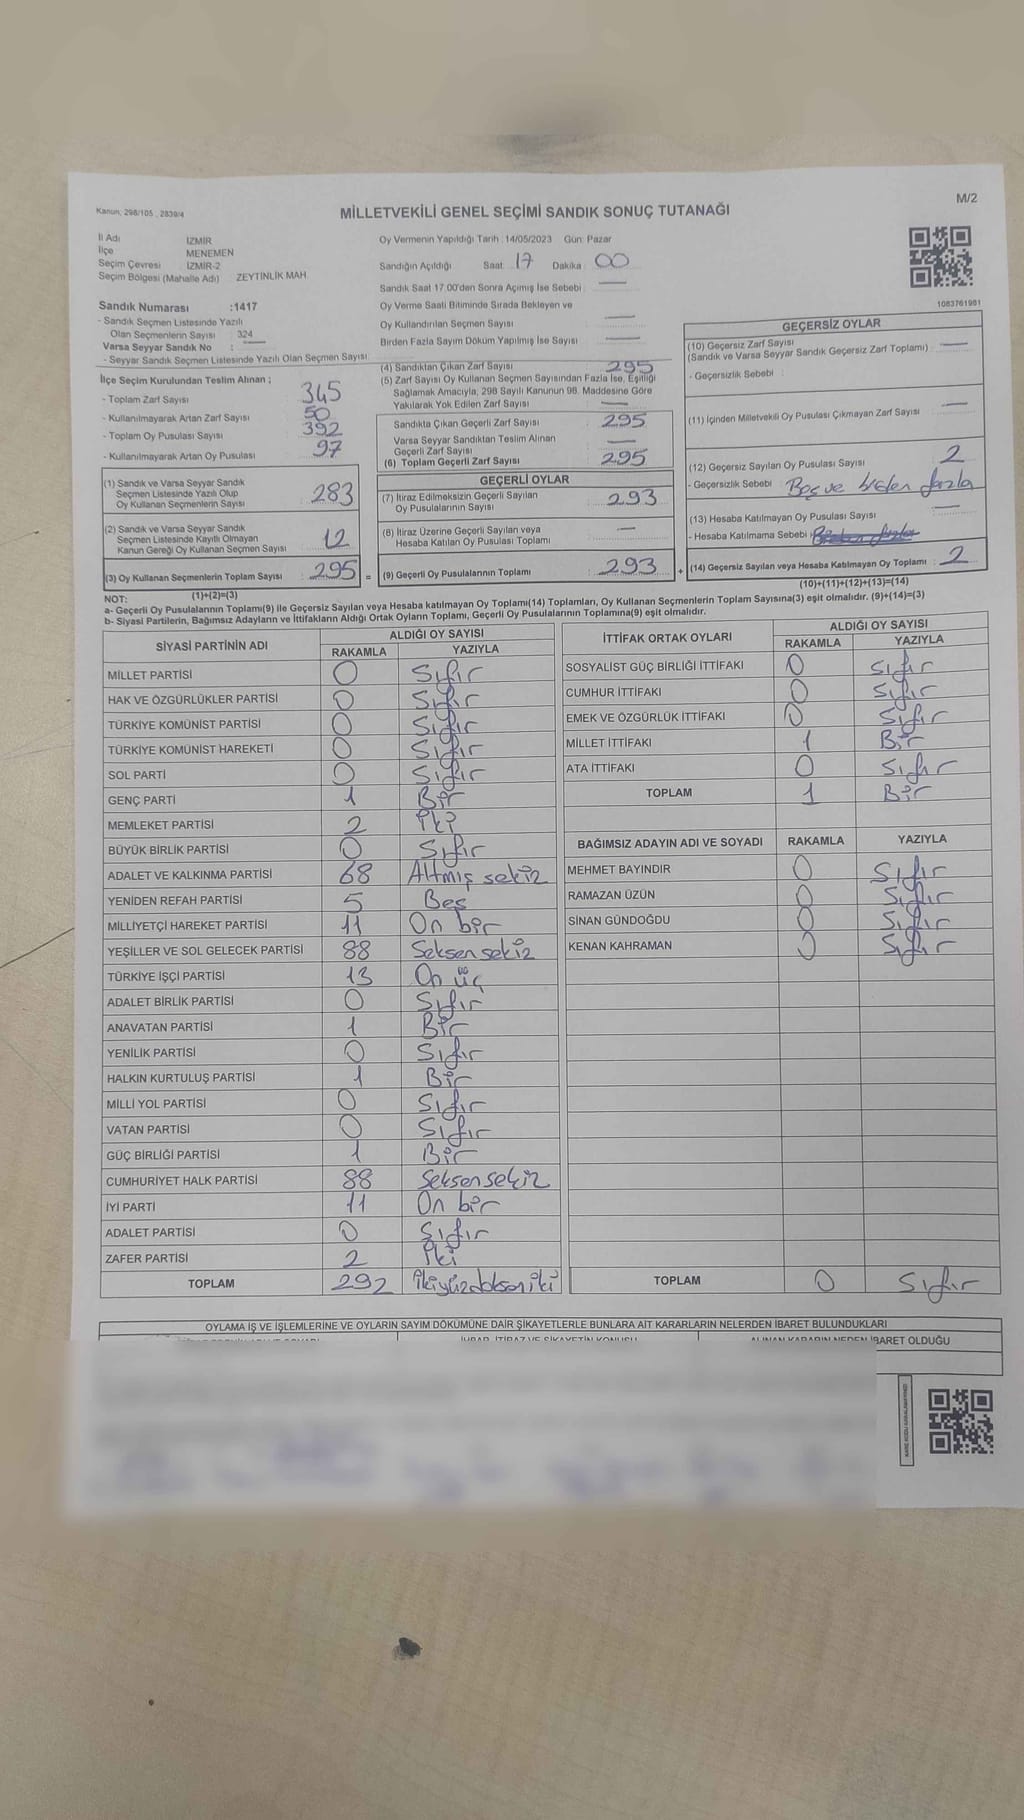 Kanun, 298/105 , 2839/4
MİLLETVEKİLİ GENEL SEÇİMİ SANDIK SONUÇ TUTANAĞI
M/2
İl Adı İZMİR
İlçe MENEMEN
Seçim Çevresi İZMİR-2
Seçim Bölgesi (Mahalle Adı) ZEYTİNLİK MAH.
Sandık Numarası :1417
- Sandık Seçmen Listesinde Yazılı
Olan Seçmenlerin Sayısı : 324
Varsa Seyyar Sandık No :
- Seyyar Sandık Seçmen Listesinde Yazılı Olan Seçmen Sayısı:
Oy Vermenin Yapıldığı Tarih : 14/05/2023 Gün: Pazar
Sandığın Açıldığı Saat: 17 Dakika : 00
Sandık Saat 17.00'den Sonra Açımış İse Sebebi : —
Oy Verme Saati Bitiminde Sırada Bekleyen ve
Oy Kullandırılan Seçmen Sayısı —
Birden Fazla Sayım Döküm Yapılmış İse Sayısı —
1083761981
İlçe Seçim Kurulundan Teslim Alınan ;
- Toplam Zarf Sayısı : 345
- Kullanılmayarak Artan Zarf Sayısı : 50
- Toplam Oy Pusulası Sayısı : 392
- Kullanılmayarak Artan Oy Pusulası : 97
(1) Sandık ve Varsa Seyyar Sandık
Seçmen Listesinde Yazılı Olup
Oy Kullanan Seçmenlerin Sayısı : 283
(2) Sandık ve Varsa Seyyar Sandık
Seçmen Listesinde Kayıtlı Olmayan
Kanun Gereği Oy Kullanan Seçmen Sayısı : 12
(3) Oy Kullanan Seçmenlerin Toplam Sayısı : 295 =
(1)+(2)=(3)
(4) Sandıktan Çıkan Zarf Sayısı : 295
(5) Zarf Sayısı Oy Kullanan Seçmen Sayısından Fazla İse, Eşitliği
Sağlamak Amacıyla, 298 Sayılı Kanunun 98. Maddesine Göre
Yakılarak Yok Edilen Zarf Sayısı : —
Sandıkta Çıkan Geçerli Zarf Sayısı : 295
Varsa Seyyar Sandıktan Teslim Alınan
Geçerli Zarf Sayısı : —
(6) Toplam Geçerli Zarf Sayısı : 295
GEÇERLİ OYLAR
(7) İtiraz Edilmeksizin Geçerli Sayılan
Oy Pusulalarının Sayısı : 293
(8) İtiraz Üzerine Geçerli Sayılan veya
Hesaba Katılan Oy Pusulası Toplamı : —
(9) Geçerli Oy Pusulalarının Toplamı : 293 +
GEÇERSİZ OYLAR
(10) Geçersiz Zarf Sayısı
(Sandık ve Varsa Seyyar Sandık Geçersiz Zarf Toplamı) : —
- Geçersizlik Sebebi :
(11) İçinden Milletvekili Oy Pusulası Çıkmayan Zarf Sayısı : —
(12) Geçersiz Sayılan Oy Pusulası Sayısı : 2
- Geçersizlik Sebebi : Boş ve birden fazla
(13) Hesaba Katılmayan Oy Pusulası Sayısı : —
- Hesaba Katılmama Sebebi :
(14) Geçersiz Sayılan veya Hesaba Katılmayan Oy Toplamı : 2
(10)+(11)+(12)+(13)=(14)
NOT:
a- Geçerli Oy Pusulalarının Toplamı(9) ile Geçersiz Sayılan veya Hesaba katılmayan Oy Toplamı(14) Toplamları, Oy Kullanan Seçmenlerin Toplam Sayısına(3) eşit olmalıdır. (9)+(14)=(3)
b- Siyasi Partilerin, Bağımsız Adayların ve İttifakların Aldığı Ortak Oyların Toplamı, Geçerli Oy Pusulalarının Toplamına(9) eşit olmalıdır.
SİYASİ PARTİNİN ADI ALDIĞI OY SAYISI
RAKAMLA YAZIYLA
MİLLET PARTİSİ 0 Sıfır
HAK VE ÖZGÜRLÜKLER PARTİSİ 0 Sıfır
TÜRKİYE KOMÜNİST PARTİSİ 0 Sıfır
TÜRKİYE KOMÜNİST HAREKETİ 0 Sıfır
SOL PARTİ 0 Sıfır
GENÇ PARTİ 1 Bir
MEMLEKET PARTİSİ 2 İki
BÜYÜK BİRLİK PARTİSİ 0 Sıfır
ADALET VE KALKINMA PARTİSİ 68 Altmış sekiz
YENİDEN REFAH PARTİSİ 5 Beş
MİLLİYETÇİ HAREKET PARTİSİ 11 On bir
YEŞİLLER VE SOL GELECEK PARTİSİ 88 Seksen sekiz
TÜRKİYE İŞÇİ PARTİSİ 13 On üç
ADALET BİRLİK PARTİSİ 0 Sıfır
ANAVATAN PARTİSİ 1 Bir
YENİLİK PARTİSİ 0 Sıfır
HALKIN KURTULUŞ PARTİSİ 1 Bir
MİLLİ YOL PARTİSİ 0 Sıfır
VATAN PARTİSİ 0 Sıfır
GÜÇ BİRLİĞİ PARTİSİ 1 Bir
CUMHURİYET HALK PARTİSİ 88 Seksen sekiz
İYİ PARTİ 11 On bir
ADALET PARTİSİ 0 Sıfır
ZAFER PARTİSİ 2 İki
TOPLAM 292 İkiyüzdoksan iki
İTTİFAK ORTAK OYLARI ALDIĞI OY SAYISI
RAKAMLA YAZIYLA
SOSYALİST GÜÇ BİRLİĞİ İTTİFAKI 0 Sıfır
CUMHUR İTTİFAKI 0 Sıfır
EMEK VE ÖZGÜRLÜK İTTİFAKI 0 Sıfır
MİLLET İTTİFAKI 1 Bir
ATA İTTİFAKI 0 Sıfır
TOPLAM 1 Bir
BAĞIMSIZ ADAYIN ADI VE SOYADI RAKAMLA YAZIYLA
MEHMET BAYINDIR 0 Sıfır
RAMAZAN ÜZÜN 0 Sıfır
SİNAN GÜNDOĞDU 0 Sıfır
KENAN KAHRAMAN 0 Sıfır
TOPLAM 0 Sıfır
OYLAMA İŞ VE İŞLEMLERİNE VE OYLARIN SAYIM DÖKÜMÜNE DAİR ŞİKAYETLERLE BUNLARA AİT KARARLARIN NELERDEN İBARET BULUNDUKLARI
İHBAR, İTİRAZ VE ŞİKAYETİN KONUSU
ALINAN KARARIN NEDEN İBARET OLDUĞU